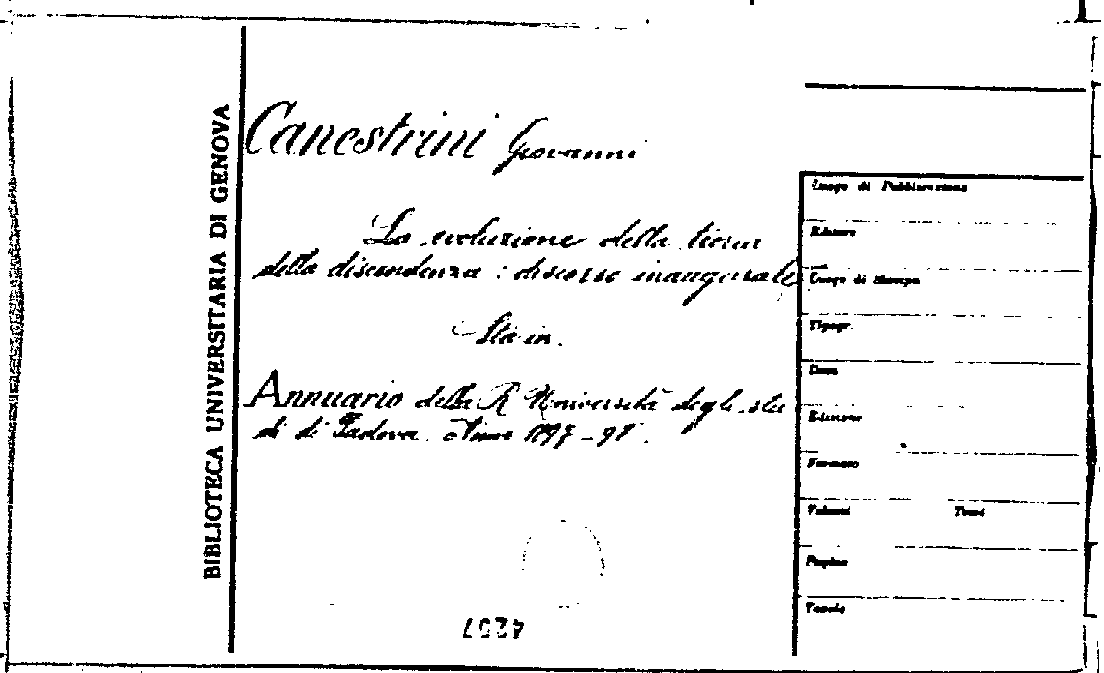 BIBLIOTECA UNIVERSITARIA DI GENOVA
Canestrini Giovanni
La evoluzione della tieur
della discendenza : discorso inaugurale
Sta in.
Annuario della R Università degli stu
di di Padova. Anno 1897-98.
4257
Luogo di Pubblicazione
Editore
Luogo di Stampa
Tipogr.
Data
Edizione
Formato
Volumi Tomi
Pagine
Tavole